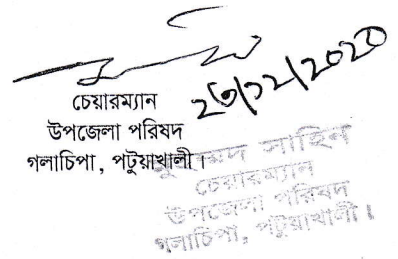 ২৩/১২/২০২০
চেয়ারম্যান
উপজেলা পরিষদ
গলাচিপা, পটুয়াখালী।
সাহিন
চেয়ারম্যান
উপজেলা পরিষদ
গলাচিপা, পটুয়াখালী।